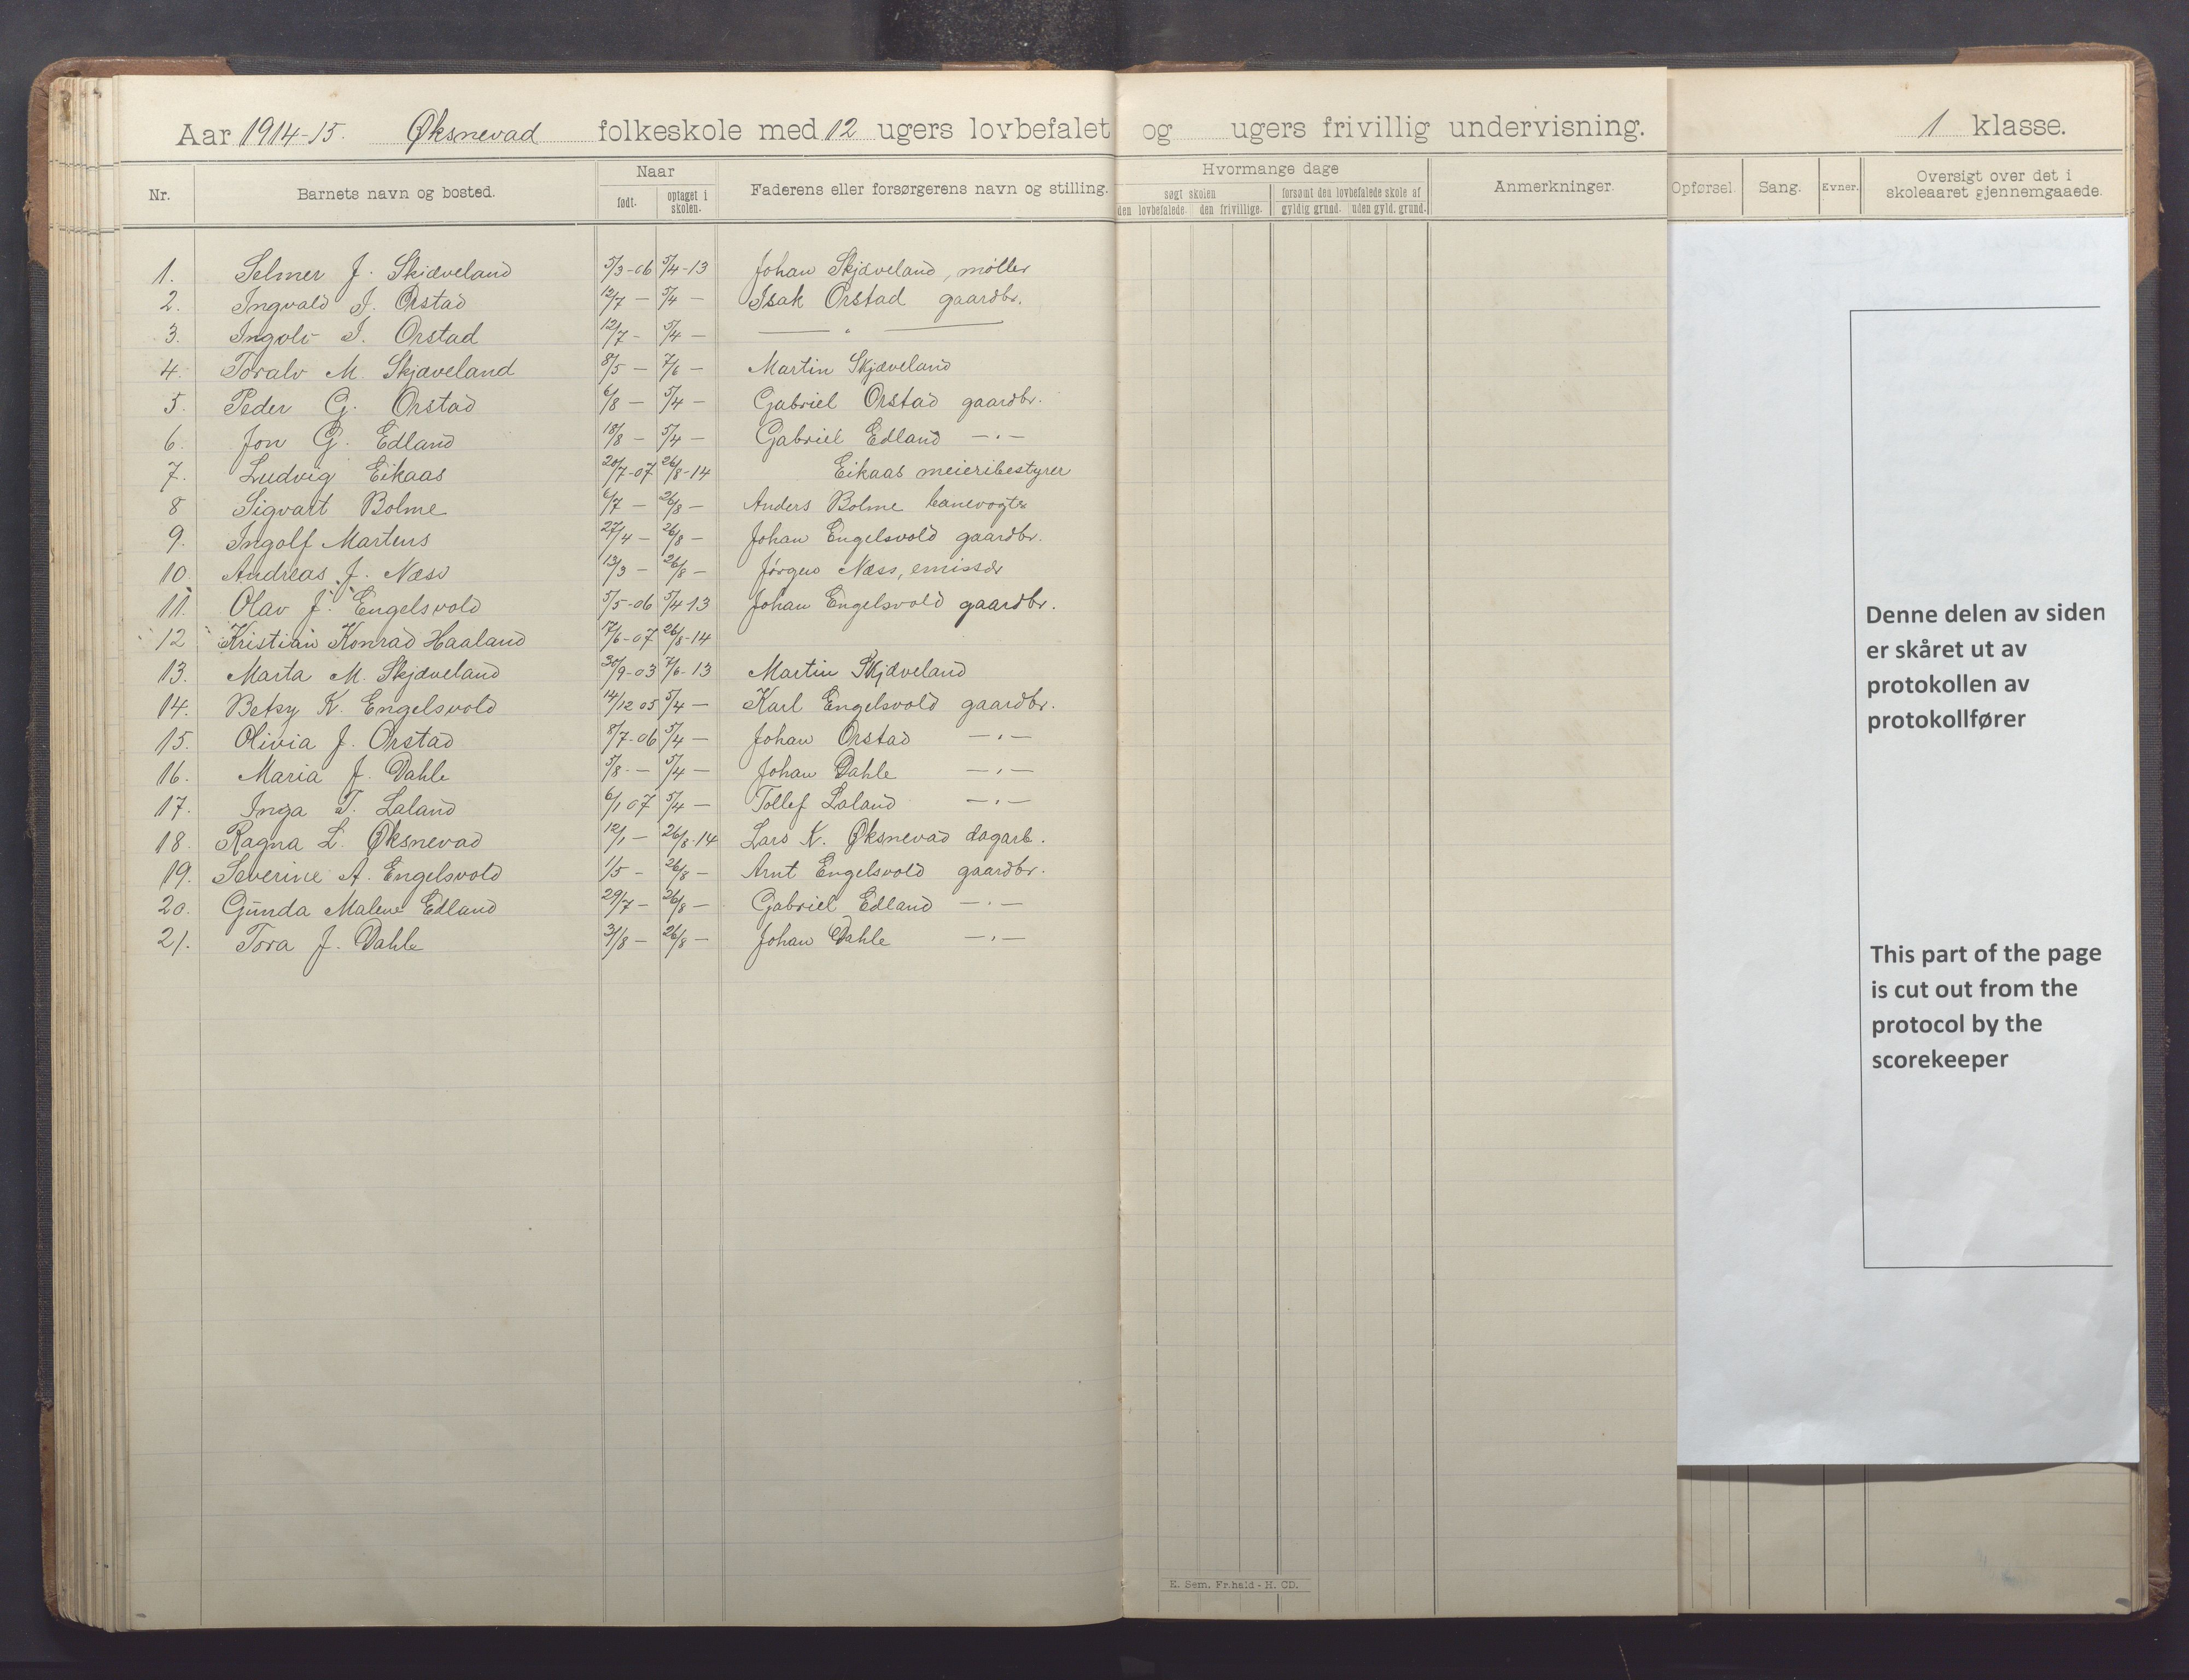 Aar 1914-15. Øksnevad folkeskole med 12 ugers lovbefalet og ugers frivillig undervisning. 1 klasse.
Nr. Barnets navn og bosted. Naar født. optaget i skolen. Faderens eller forsørgerens navn og stilling. Hvormange dage søgt skolen den lovbefalede. den frivillige. forsømt den lovbefalede skole af gyldig grund. uden gyld. grund. Anmerkninger. Opførsel. Sang. Evner. Oversigt over det i skoleaaret gjennemgaaede.
1. Selmer J. Skjæveland 5/3-06 5/4-13 Johan Skjæveland, møller
2. Ingvald I. Orstad 12/7 — 5/4 — Isak Orstad gaardbr.
3. Ingolv I. Orstad 12/7 - 5/4 — — " —
4. Toralv M. Skjæveland 8/5 — 7/6 — Martin Skjæveland
5. Peder G. Orstad 6/8 — 5/4 — Gabriel Orstad gaardbr.
6. Jon G. Edland 18/8 — 5/4 — Gabriel Edland — " —
7. Ludvig Eikaas 20/7-07 26/8-14 Eikaas meieribestyrer
8 Sigvart Bolme 6/7 — 26/8 — Anders Bolme banevogter
9. Ingolf Martens 27/4 — 26/8 — Johan Engelsvold gaardbr.
10. Andreas J. Næss 13/3 — 26/8 — Jørgen Næss, emissær
11. Olav J. Engelsvold 5/5-06 5/4-13 Johan Engelsvold gaardbr.
12 Kristian Konrad Haaland 17/6-07 26/8-14
13. Marta M. Skjæveland 30/9-03 7/6-13 Martin Skjæveland
14. Betsy K. Engelsvold 14/12 05 5/4 — Karl Engelsvold gaardbr.
15. Olivia J. Orstad 8/7-06 5/4 — Johan Orstad — " —
16. Maria J. Dahle 5/8 — 5/4 — Johan Dahle — " —
17. Inga T. Laland 6/1 07 5/4 — Tollef Laland — " —
18. Ragna L. Øksnevad 12/1 — 26/8-14 Lars K. Øksnevad dagarb.
19. Severine A. Engelsvold 1/5 - 26/8 — Arnt Engelsvold gaardbr.
20. Gunda Malene Edland 29/7 — 26/8 — Gabriel Edland — " —
21. Tora J. Dahle 31/8 — 26/8 — Johan Dahle — " —
Denne delen av siden
er skåret ut av
protokollen av
protokollfører
This part of the page
is cut out from the
protocol by the
scorekeeper
E. Sem, Fr.hald - H. CD.